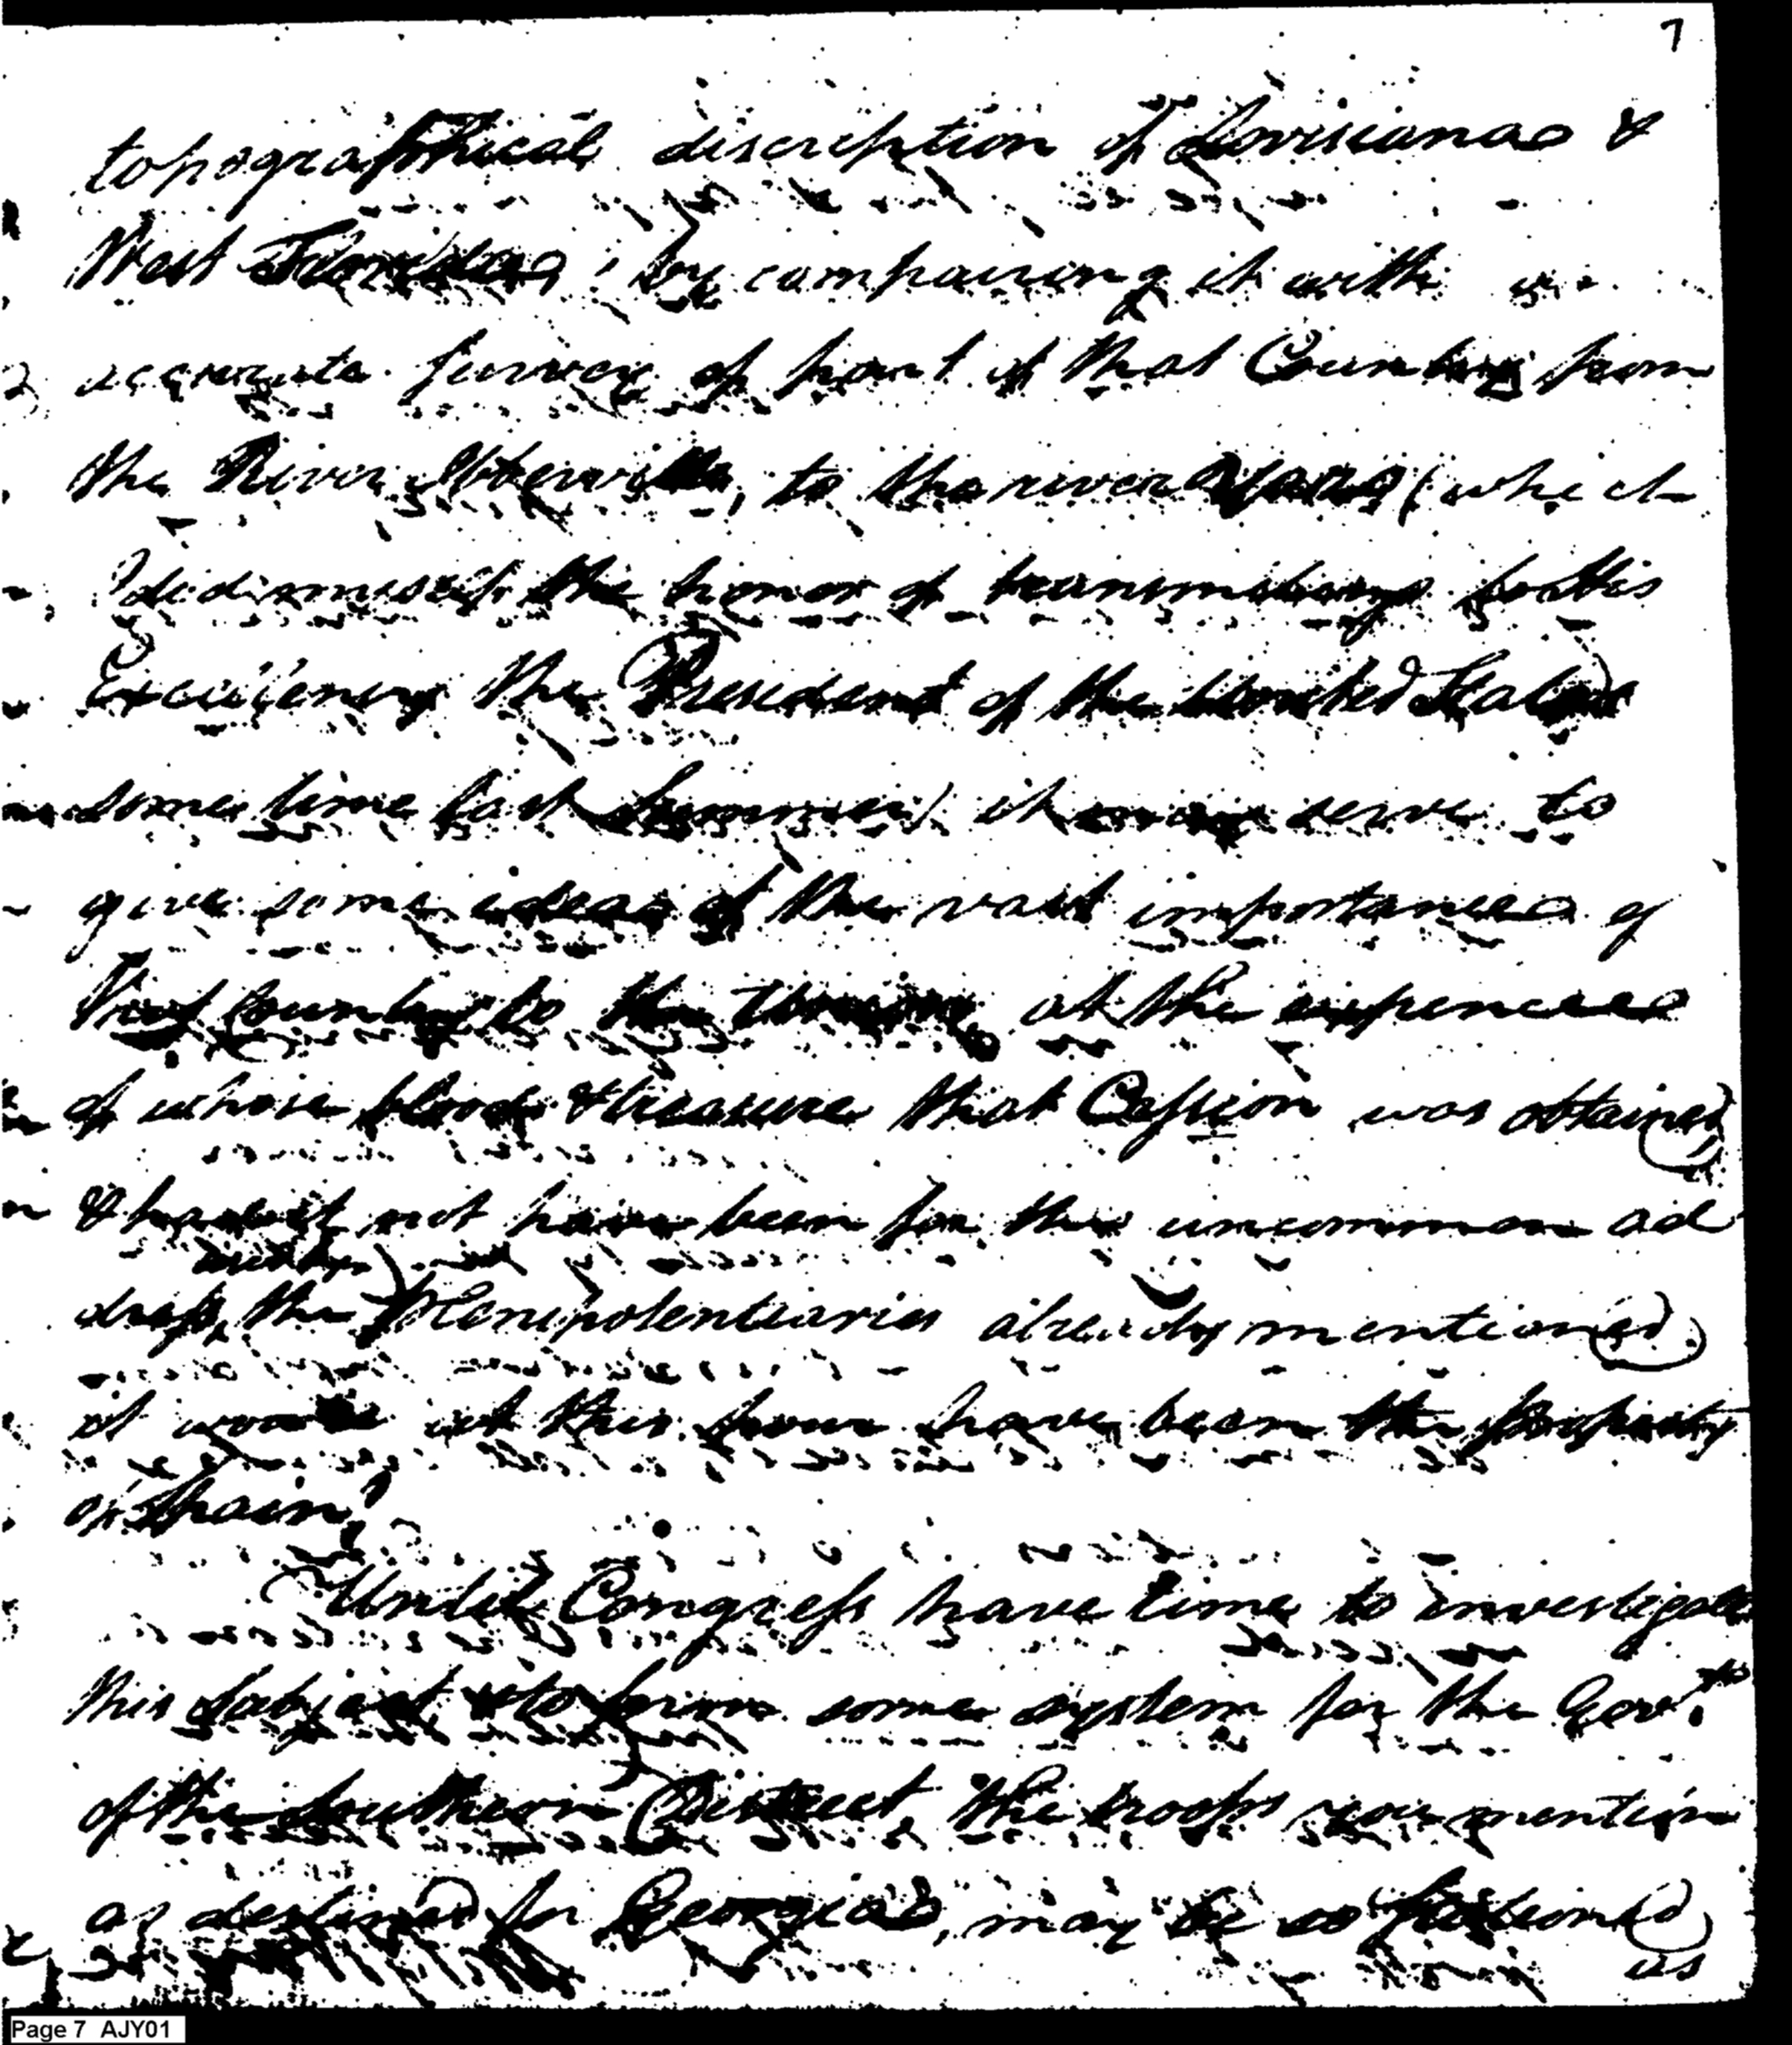 7
topographical discription of Louisiana &
West Florida; by compairing it with
accurate survey of part of that Country from
the River Ibberville, to the river Yasou (which
I did myself the honor of transmitting to His
Excellency the President of the United States
some time last Summer) it may serve to
give some ideas of the vast importance of
that Country to the Union, at the expence
of whose blood & treasure that Cession was obtained,
& had it not have been for the uncommon ad
dress, the Plenipotentiaries already mentioned,
it would at this hour have been the property
of Spain.
Until Congress have time to investigate
this Subject & to form some system for the Govt.
of the Southern District, the troops you mention
as destined for Georgia, may be so stationed
as
Page 7 AJY01